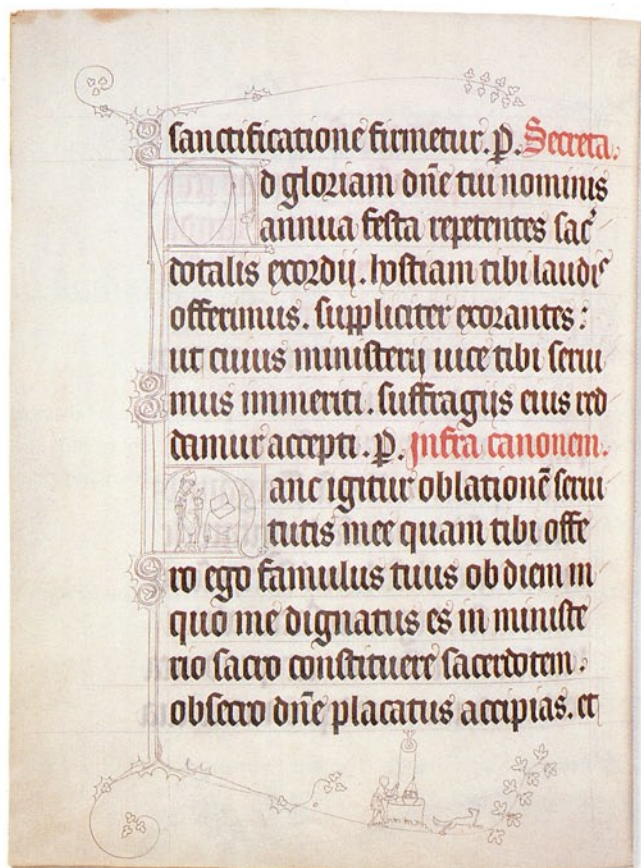 sanctificatione firmetur. P. Secreta.
d gloriam dñe tui nominis
annua festa repetentes sac̉
dotalis exordij. hostiam tibi laudis
offerimus. suppliciter exorantes:
ut cuius ministerij uice tibi serui
mus immeriti. suffragijs eius red
damur accepti. P. infra canonem.
anc igitur oblationē serui
tutis mee quam tibi offe
ro ego famulus tuus ob diem in
quo me dignatus es in ministe
rio sacro constituere sacerdotem:
obsecro dñe placatus accipias. et